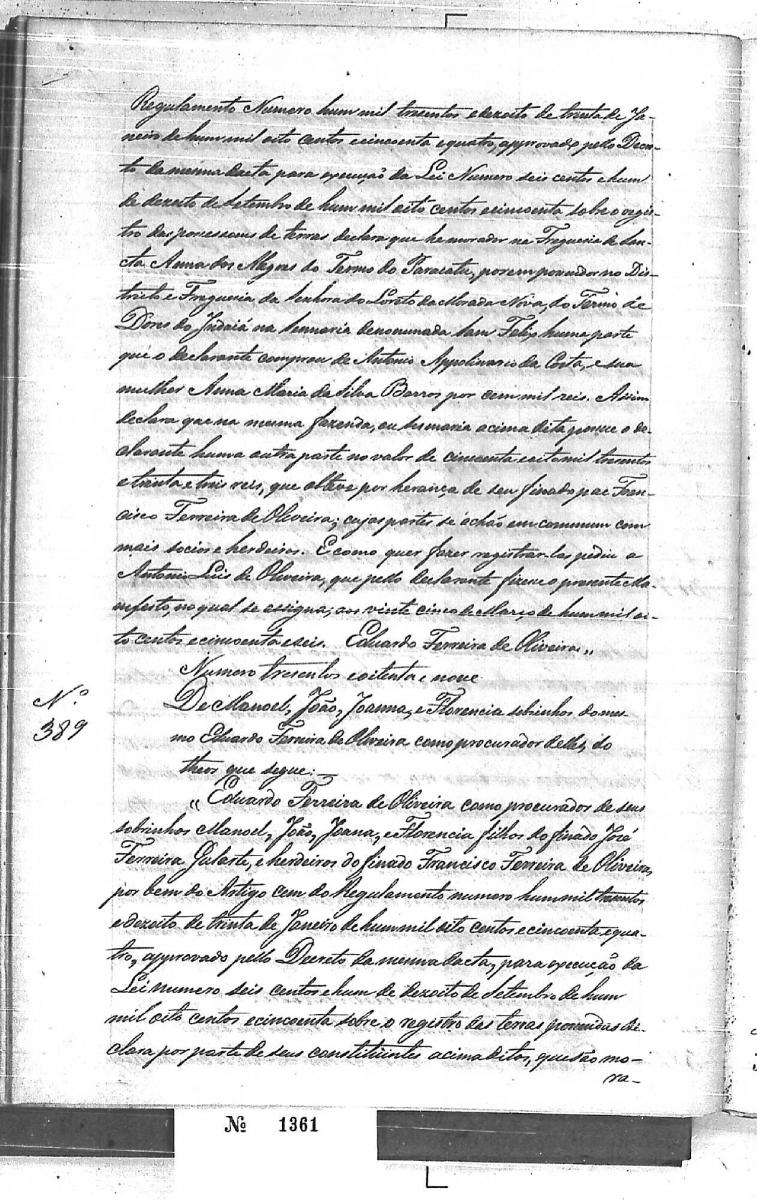 Regulamento Numero hum mil tresentos e dezoito de trinta de Ja-
neiro de hum mil oito centos e cincoenta e quatro, approvado pello Decre-
to da mesma dacta para execução da Lei Numero seis centos e hum
de dezoito de Setembro de hum mil oito centos e cincoenta sobre o regis-
tro das possessoens de terras declara que he morador na Freguesia de San-
cta Anna dos Alegres do Termo do Paracatu, porem possuidor no Dis-
tricto e Freguesia da Senhora do Loreto da Morada Nova, do Termo de
Dores do Indaiá na Sesmaria denonunada Sam Felix huma parte
que o declarante comprou de Antonio Appolinario da Costa, e sua
mulher Anna Maria da Silva Barros por cem mil reis. Assim
declara que na mesma fazenda, ou sesmaria acima dita possue o de-
clarante huma outra parte no valor de cincoenta e oito mil tresentos
e trinta e tres reis, que obteve por herança de seu finado pae Fran-
cisco Ferreira de Oliveira; cujas partes se achão em commum com
mais socios e herdeiros. E como quer fazer registrar-las pediu a
Antonio Luis de Oliveira, que pello declarante fizesse o presente Ma-
nifesto, no qual se assigna; aos vinte cinco de Março de hum mil oi-
to centos e cincoenta e seis. Eduardo Ferreira de Oliveira „
Numero tresentos e oitenta e nove
N.º
389
De Manoel, João, Joanna, e Florencia sobrinhos do mes-
mo Eduardo Ferreira de Oliveira como procurador delles, do
theor que segue: —
„ Eduardo Ferreira de Oliveira como procurador de seus
sobrinhos Manoel, João, Joana, e Florencia filhos do finado José
Ferreira Gularte, e herdeiros do finado Francisco Ferreira de Oliveira,
por bem do Artigo cem do Regulamento numero hum mil tresentos
e dezoito de trinta de Janeiro de hum mil oito centos e cincoenta e qua-
tro, approvado pello Decreto da mesma dacta, para execução da
Lei numero seis centos e hum de dezoito de Setembro de hum
mil oito centos e cincoenta sobre o registro das terras possuidas de-
clara por parte de seus constituintes acima ditos, que são mo-
ra-
Nº 1361